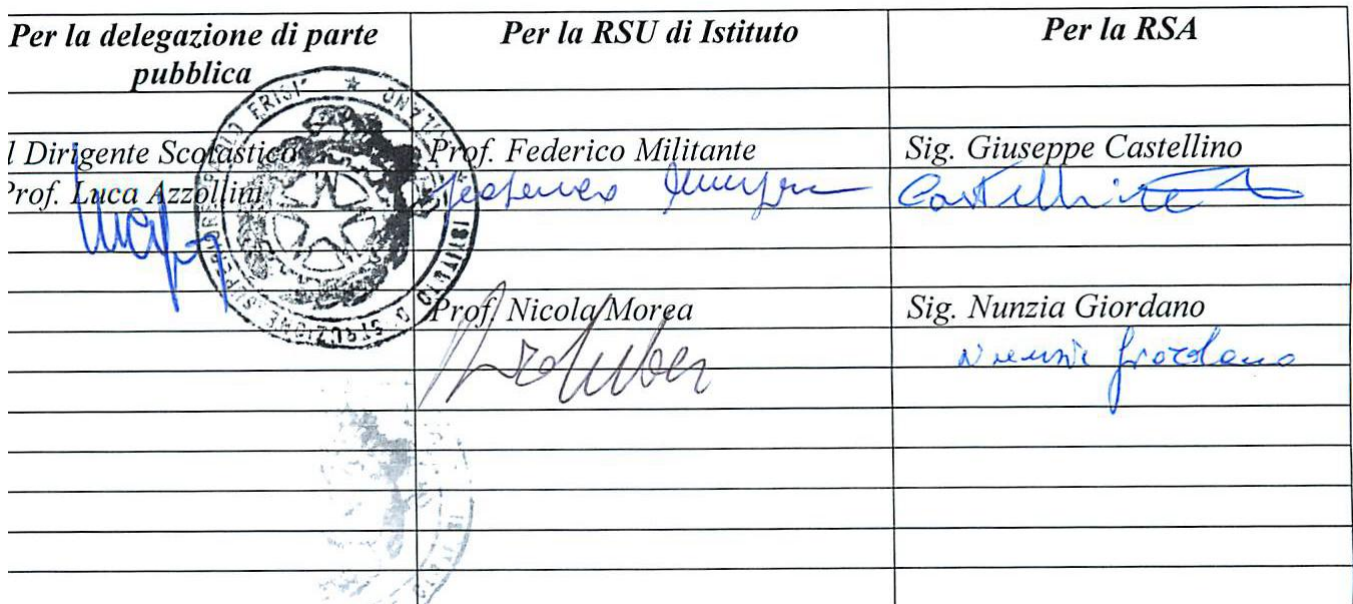 Per la delegazione di parte
pubblica
Per la RSU di Istituto
Per la RSA
l Dirigente Scolastico
Prof. Federico Militante
Sig. Giuseppe Castellino
Prof. Luca Azzollini
Castellino
Prof. Nicola Morea
Sig. Nunzia Giordano
Nunzia Giordano